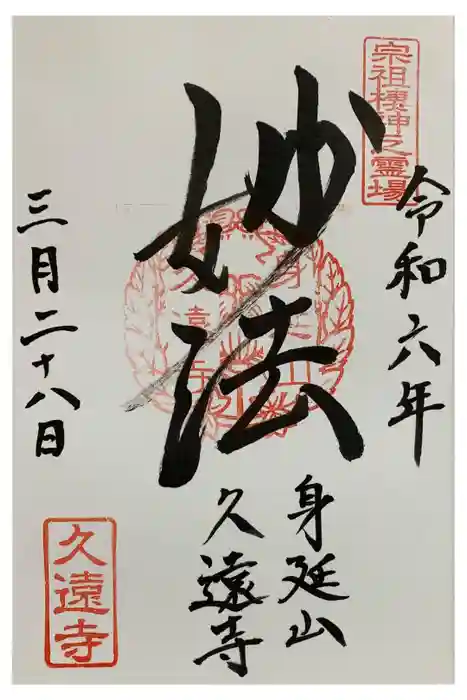 宗祖棲神之霊場
令和六年
妙法
身延山
久遠寺
三月二十八日
久遠寺